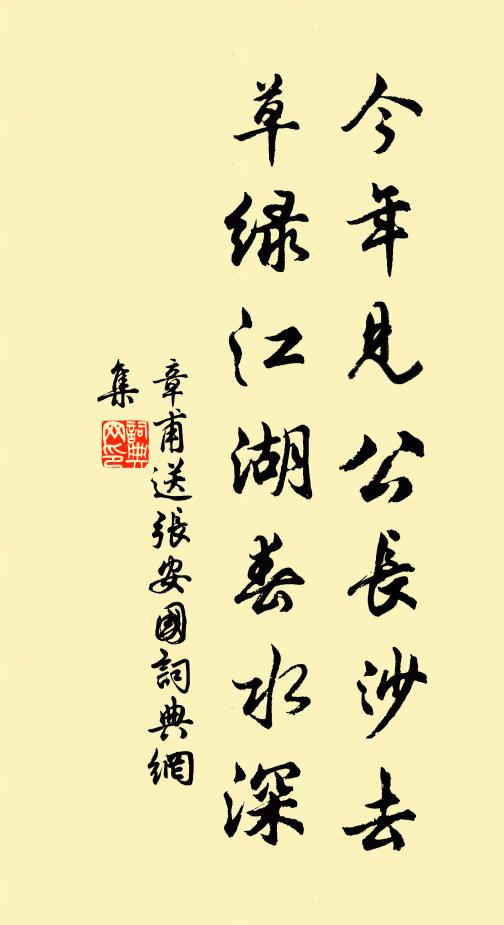 今年見公長沙去
草绿江湖春水深
章甫送張安國詞典網
集
詞典
网印